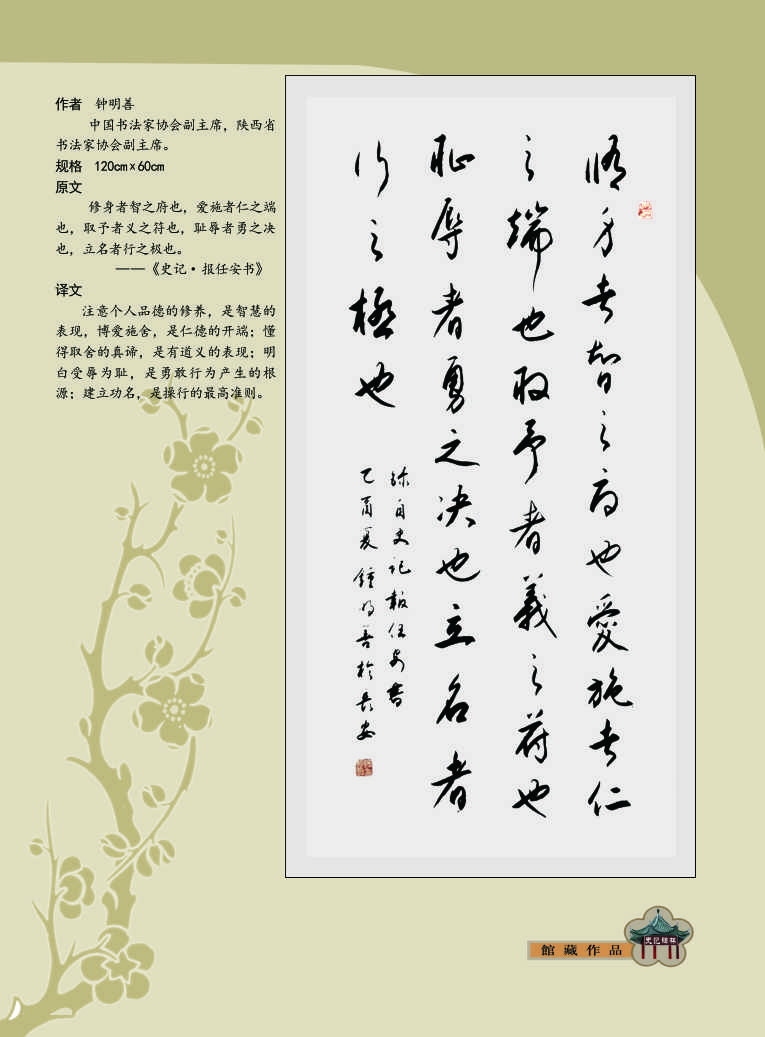 作者 钟明善
中国书法家协会副主席，陕西省
书法家协会副主席。
规格 120cm×60cm
原文
修身者智之府也，爱施者仁之端
也，取予者义之符也，耻辱者勇之决
也，立名者行之极也。
——《史记·报任安书》
译文
注意个人品德的修养，是智慧的
表现，博爱施舍，是仁德的开端；懂
得取舍的真谛，是有道义的表现；明
白受辱为耻，是勇敢行为产生的根
源；建立功名，是操行的最高准则。
修身者智之府也愛施者仁
之端也取予者義之符也
耻辱者勇之决也立名者
行之極也
錄自史記報任安書
乙酉夏鍾明善於長安
館藏作品
史記碑林